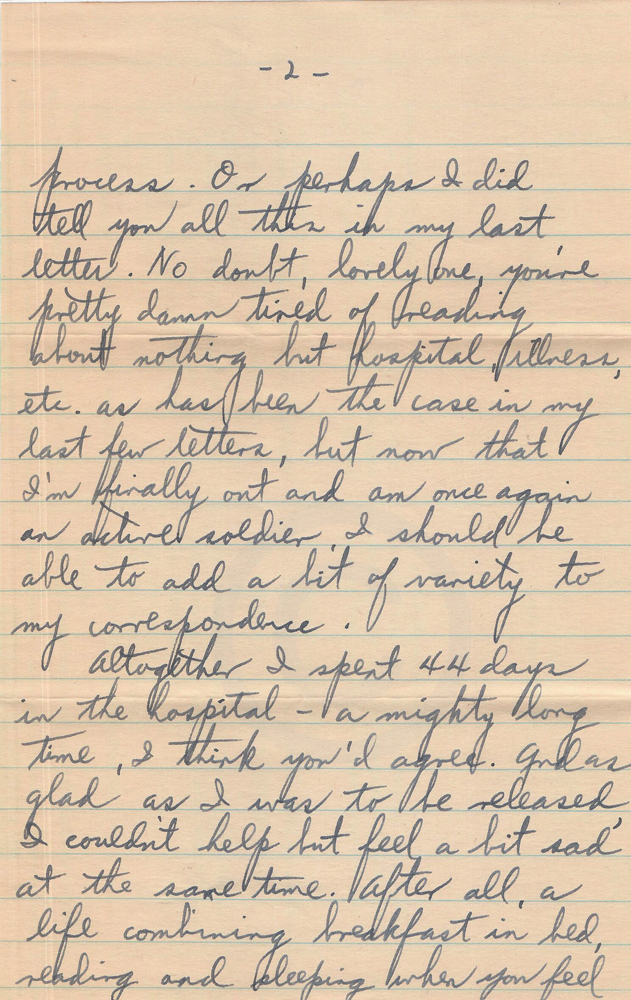 - 2 -
process. Or perhaps I did
tell you all this in my last
letter. No doubt, lovely one, you're
pretty damn tired of reading
about nothing but hospital, illness,
etc. as has been the case in my
last few letters, but now that
I'm finally out and am once again
an active soldier, I should be
able to add a bit of variety to
my correspondence.
Altogether I spent 44 days
in the hospital - a mighty long
time, I think you'd agree. And as
glad as I was to be released,
I couldn't help but feel a bit sad
at the same time. After all, a
life combining breakfast in bed,
reading and sleeping when you feel